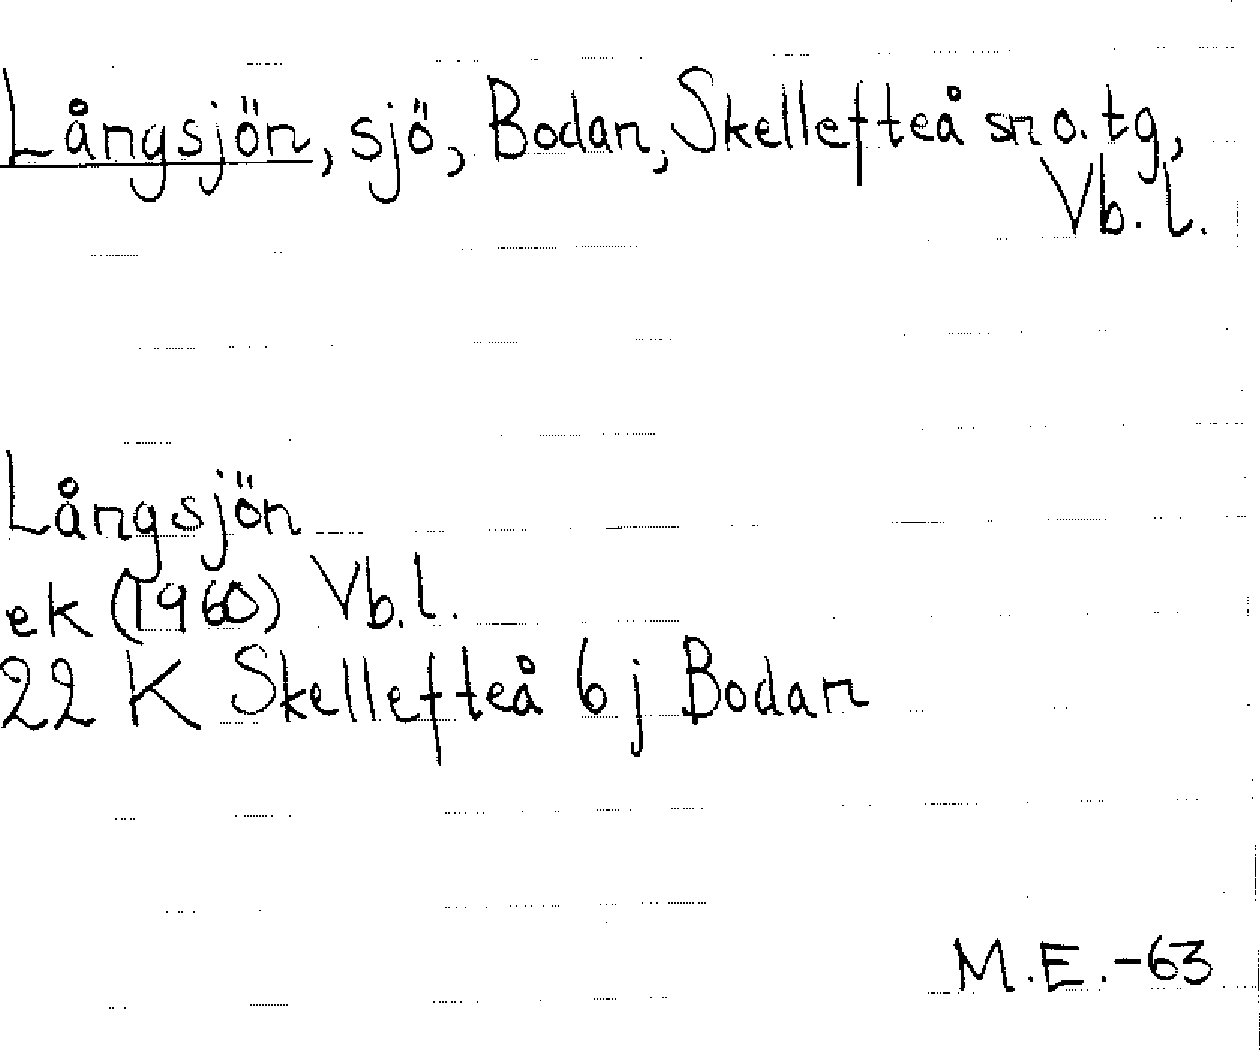 Långsjön, sjö, Bodan, Skellefteå sn o. tg,
Vb. l.
Långsjön
ek (1960) Vb. l.
22 K Skellefteå 6 j Bodan
M.E.-63